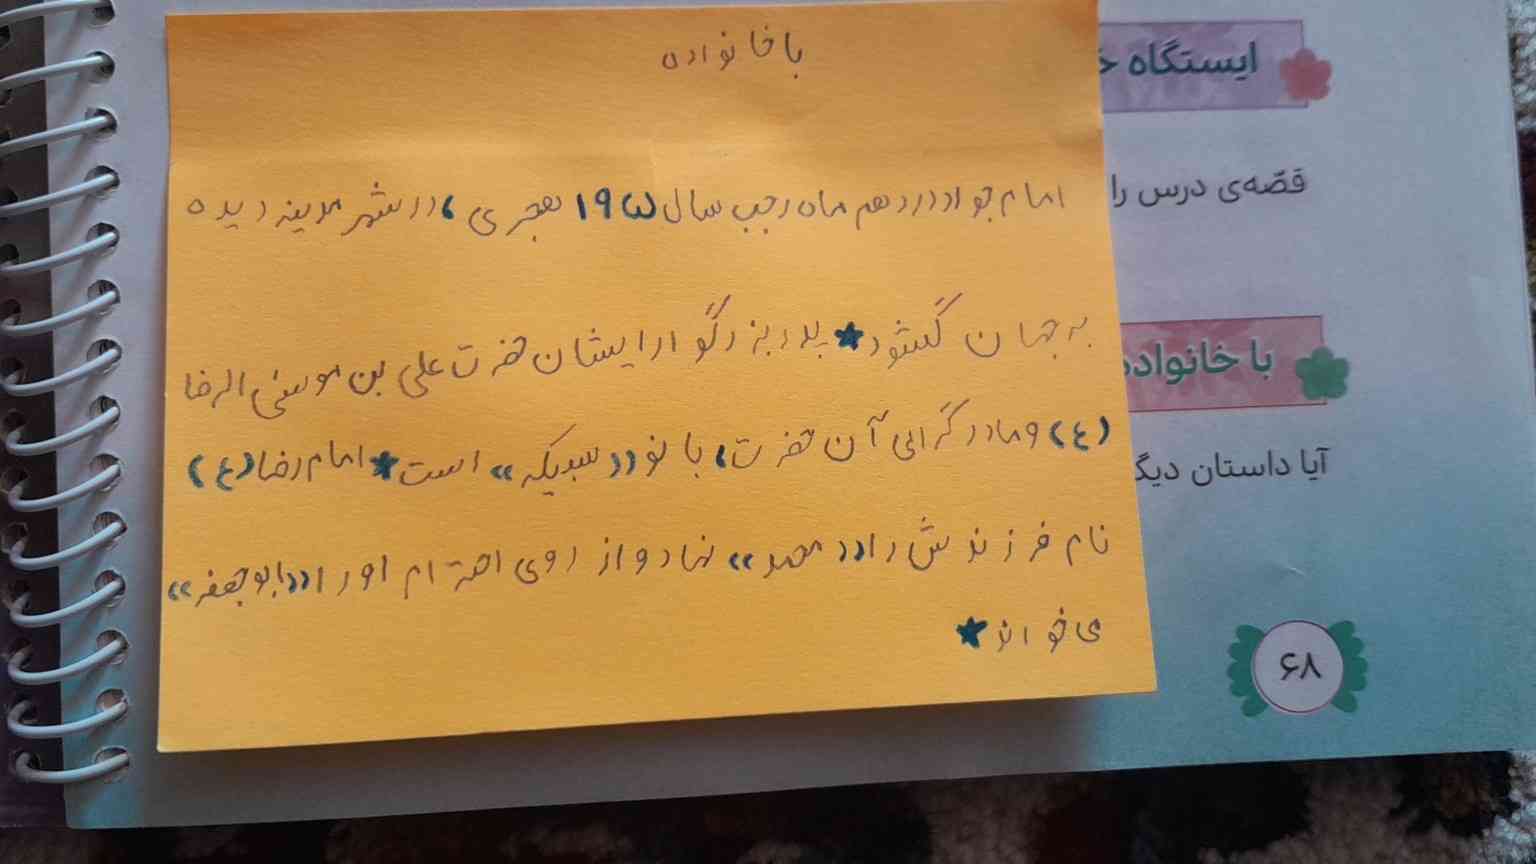 با خانواده
امام جواد در دهم ماه رجب سال ۱۹۵ هجری، در شهر مدینه دیده
به جهان گشود★ پدر بزرگوار ایشان حضرت علی بن موسی الرضا
(ع) و مادر گرامی آن حضرت، بانو «سبیکه» است★ امام رضا (ع)
نام فرزندش را «محمد» نهاد و از روی احترام او را «ابوجعفر»
می خواند★
ایستگاه خ
قصّه‌ی درس را
با خانواده
آیا داستان دیگ
۶۸